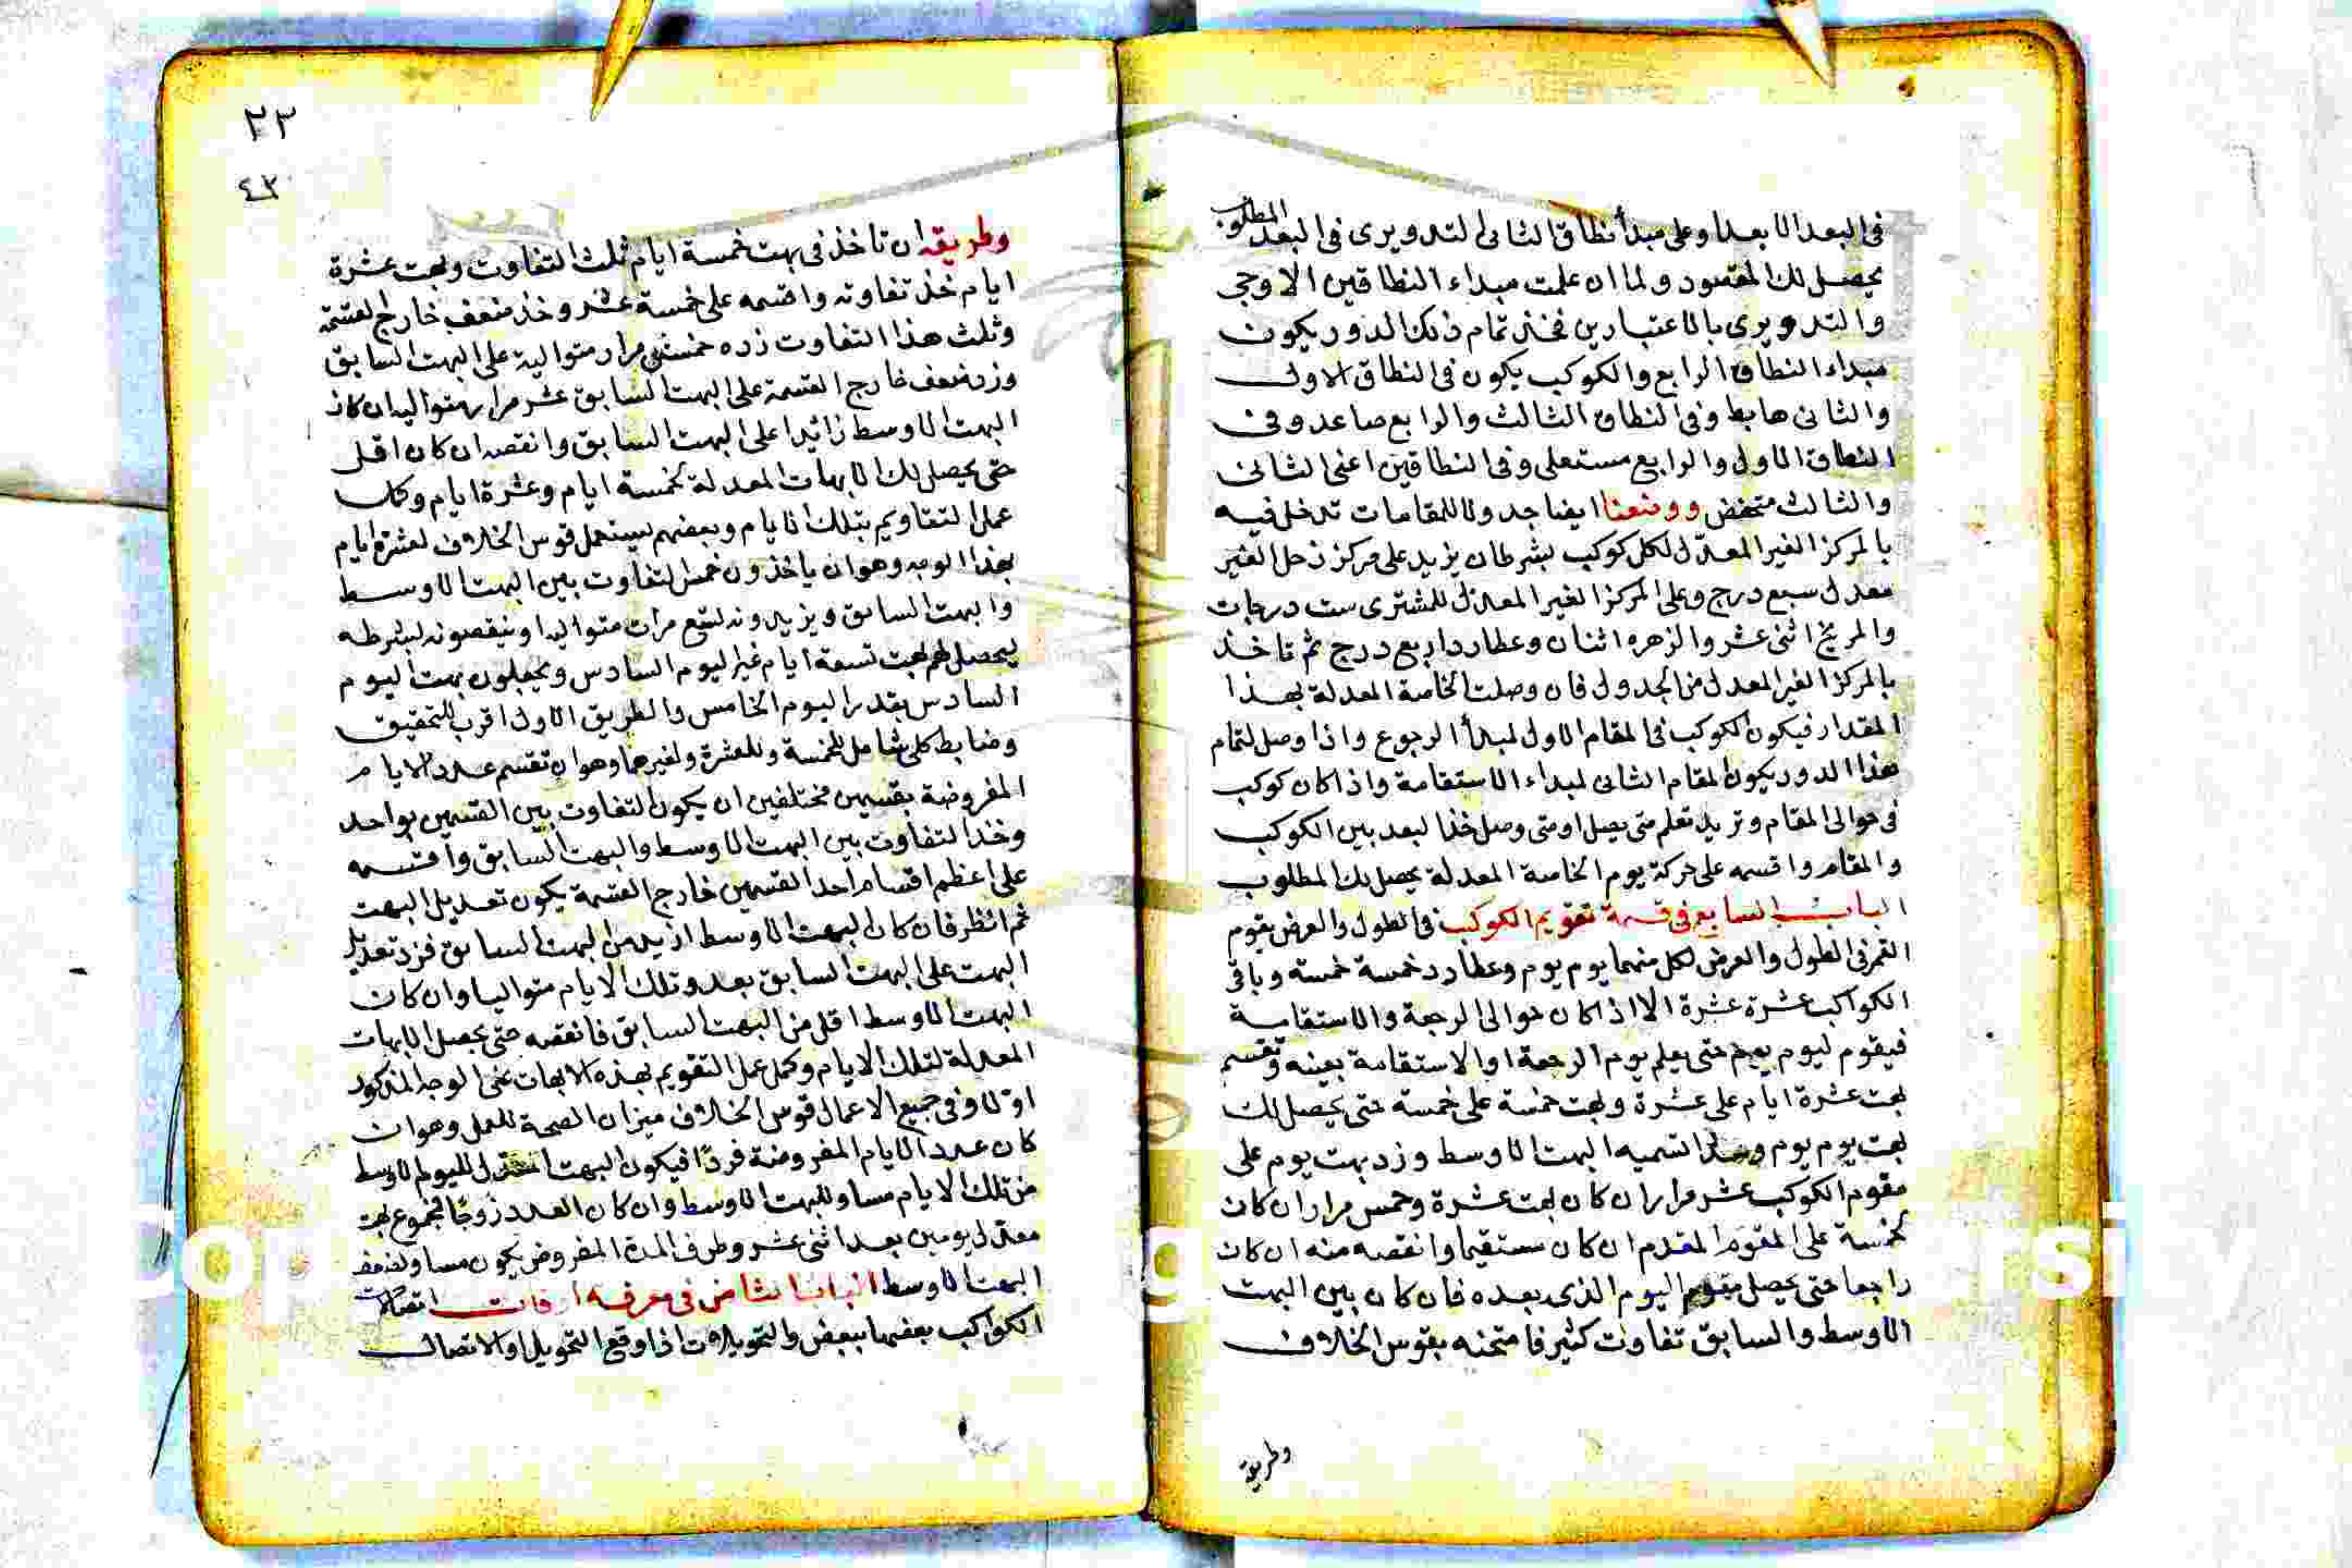 في البعد الابعد او على مبدأ نظاق الثانى التدويرى فى البعد المطلوب
يحصل لك المقصود ولما ان علمت مبداء النطاقين الاوجى
والتدويرى بالاعتبارين فخذ تمام ذلك الدور يكون
مبداء النطاق الرابع والكوكب يكون فى النطاق الاول
والثانى هابط وفى النطاق الثالث والرابع صاعد وفى
النطاق الاول والرابع مستعلى وفى النطاقين اعنى الثانى
والثالث منخفض ووضعنا ايضا جدولا للمقامات تدخل فيه
بالمركز الغير المعدّل لكل كوكب بشرط ان يزيد على مركز زحل الغير
معدل سبع درج وعلى المركز الغير المعدل للمشترى ست درجات
والمريخ اثنى عشر والزهره اثنان وعطارد اربع درج ثم تاخذ
بالمركز الغير المعدل من الجدول فان وصلت الخاصة المعدلة بهذا
المقدار فيكون الكوكب فى المقام الاول لمبدأ الرجوع واذا وصل لتمام
هذا الدور يكون المقام الثانى لمبداء الاستقامة واذا كان كوكب
فى حوالى المقام وتريد تعلم متى يصل او متى وصل خذ البعد بين الكوكب
والمقام واقسمه على حركة يوم الخاصة المعدلة يحصل لك المطلوب
الباب السابع فى قسمة تقويم الكوكب فى الطول والعرض يقوم
القمر فى الطول والعرض لكل منهما يوم يوم وعطارد خمسة خمسة وباقى
الكواكب عشرة عشرة الا اذا كان حوالى الرجعة والاستقامة
فيقوم ليوم يوم حتى يعلم يوم الرجعة او الاستقامة بعينه وتقسم
بهت عشرة ايام على عشرة وبهت خمسة على خمسة حتى يحصل لك
بهت يوم يوم وهذا تسميه البهت الاوسط وزد بهت يوم على
مقوم الكوكب عشر مرار ان كان بهت عشرة وخمس مرار ان كان
لخمسة على المقوم المقدم ان كان مستقيما وانقصه منه ان كان
راجعا حتى يحصل مقوم اليوم الذى بعده فان كان بين البهت
الاوسط والسابق تفاوت كثير فامتحنه بقوس الخلاف
وطريقه
٢٣
٤٣
وطريقه ان تاخذ فى بهت خمسة ايام ثلث التفاوت وبهت عشرة
ايام خذ تفاوته واقسمه على خمسة عشر وخذ ضعف خارج القسمة
وثلث هذا التفاوت زده خمسة مرار متوالية على البهت السابق
وزد ضعف خارج القسمة على البهت السابق عشر مرار متواليه ان كان
البهت الاوسط زائدا على البهت السابق وانقصه ان كان اقل
حتى يحصل لك الابهات المعدلة لخمسة ايام وعشرة ايام وكمل
عمل التقاويم بتلك الايام وبعضهم يستعمل قوس الخلاف لعشرة ايام
بهذا الوجه وهو ان ياخذون خمس التفاوت بين البهت الاوسط
والبهت السابق ويزيدونه لتسع مرات متواليه او ينقصونه بشرطه
ليحصل لهم بهت تسعة ايام غير اليوم السادس ويجعلون بهت اليوم
السادس بقدر اليوم الخامس والطريق الاول اقرب للتحقيق
وضابط كلى شامل للخمسة وللعشرة ولغيرهما وهو ان تقسم عدد الايام
المفروضة بقسمين مختلفين ان يكون التفاوت بين القسمين بواحد
وخذ التفاوت بين البهت الاوسط والبهت السابق واقسمه
على اعظم اقسام احد القسمين خارج القسمة يكون تعديل البهت
ثم انظر فان كان البهت الاوسط ازيد من البهت السابق فزد تعديل
البهت على البهت السابق بعدد تلك الايام متواليا وان كان
البهت الاوسط اقل من البهت السابق فانقصه حتى يحصل الابهات
المعدلة لتلك الايام وكمل عمل التقويم بهذه الابهات على الوجه المذكور
اولا وفى جميع الاعمال قوس الخلاف ميزان الصحة للعمل وهو ان
كان عدد الايام المفروضة فردا فيكون البهت المعدل لليوم الاوسط
من تلك الايام مساو للبهت الاوسط وان كان العدد زوجا فمجموع بهت
معدل يومين بعد اثنى عشر وطرفى المدة المفروض يكون مساو لضعف
البهت الاوسط الباب الثامن فى معرفه اوقات اتصالات
الكواكب بعضها ببعض والتحويلات اذا وقع التحويل او الاتصال